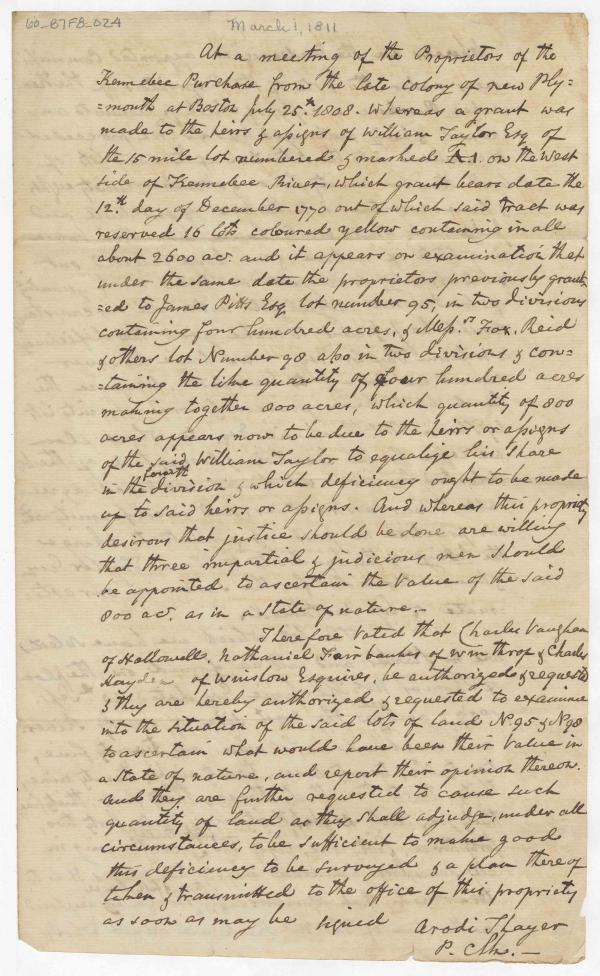 60_B7F8_024
March 1, 1811
At a meeting of the Proprietors of the
Kennebec Purchase from the late colony of new Ply=
=mouth at Boston July 25.th 1808. Whereas a grant was
made to the heirs & assigns of William Taylor Esq of
the 15 mile lot numbered & marked K.1. on the west
side of Kennebec River, which grant bears date the
12.th day of December 1770 out of which said tract was
reserved 16 lots coloured yellow containing in all
about 2600 ac. and it appears on examination that
under the same date the proprietors previously grant=
=ed to James Pitts Esq lot number 95, in two divisions
containing four hundred acres, & Mess.rs Fox, Reid
& others lot Number 98 also in two divisions & con=
=taining the like quantity of four hundred acres
making together 800 acres, which quantity of 800
acres appears now to be due to the heirs or assigns
of the said William Taylor to equalize his share
in the fourth division & which deficiency ought to be made
up to said heirs or assigns. And whereas this propriety
desirous that justice should be done are willing
that three impartial & judicious men should
be appointed to ascertain the value of the said
800 ac. as in a state of nature.—
Therefore Voted that Charles Vaughan
of Hallowell, Nathaniel Fairbanks of Winthrop & Charles
Hayden of Winslow Esquires, be authorized & requested
& they are hereby authorized & requested to examine
into the situation of the said lots of land No 95 & No 98
to ascertain what would have been their value in
a state of nature, and report their opinion thereon.
And they are further requested to cause such
quantity of land as they shall adjudge, under all
circumstances, to be sufficient to make good
this deficiency to be surveyed & a plan there of
taken & transmitted to the office of this propriety
as soon as may be signed Arodi Thayer
P. Clk.—